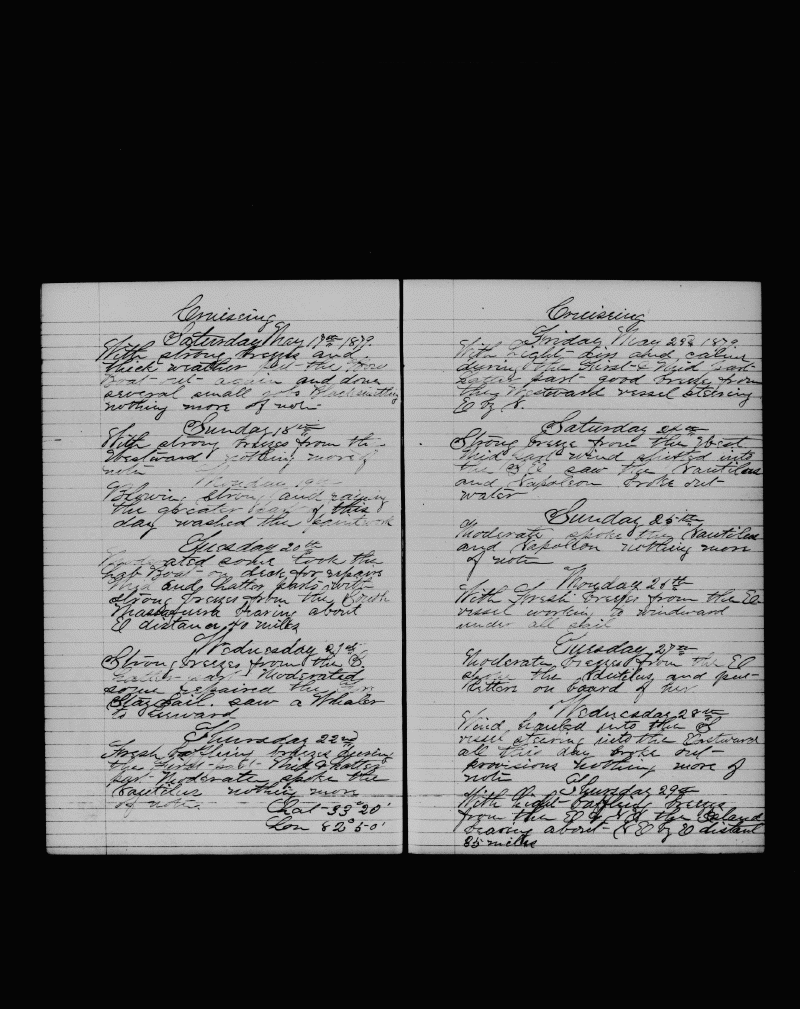 Cruising
Saturday May 17th 1879
With strong breezes and
thick weather put the Bow
Boat out again and done
several small jobs Blacksmithing
nothing more of note
Sunday 18th
With strong breezes from the
Westward nothing more of
note
Monday 19th
Blowing strong and raining
the greater part of this
day washed the paintwork
Tuesday 20th
Moderated some took the
Boat on deck for repairs
Mid and latter parts with
strong breezes from the South
Massafuera bearing about
E distance 70 miles
Wednesday 21st
Strong breezes from the S.
latter part Moderated
some repaired the
Stay Sail. saw a Whaler
to Leeward
Thursday 22nd
Fresh baffling breezes during
the first part Mid & latter
part Moderate spoke the
Nautilus nothing more
of note.
Lat 33° 20'
Lon 82° 50'
Cruising
Friday May 23d 1879
With light airs and calms
during the First & Mid part
latter part good breeze from
the Westward vessel steering
E by S.
Saturday 24th
Strong breeze from the West
Mid part wind shifted into
the saw the Nautilus
and Napoleon broke out
water
Sunday 25th
Moderate spoke the Nautilus
and Napoleon nothing more
of note
Monday 26th
With fresh breezes from the E
vessel working to windward
under all sail
Tuesday 27th
Moderate breezes from the E
spoke the Nautilus and put
letters on board of her
Wednesday 28th
Wind hauled into the S
vessel steering into the Eastward
all this day broke out
provisions nothing more of
note
Thursday 29th
With light baffling breeze
from the the Island
bearing about S E by E distant
85 miles